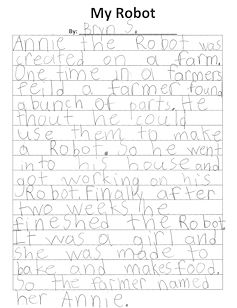 My Robot
By: Bryn S.
Annie the Robot was
created on a farm.
One time in a farmers
feild a farmer found
a bunch of parts. He
thout he could
use them to make
a Robot. So he went
into his house and
got working on his
Robot. Finally after
two weeks he
fineshed the Robot.
It was a girl and
she was made to
bake and makes food.
So the farmer named
her Annie.